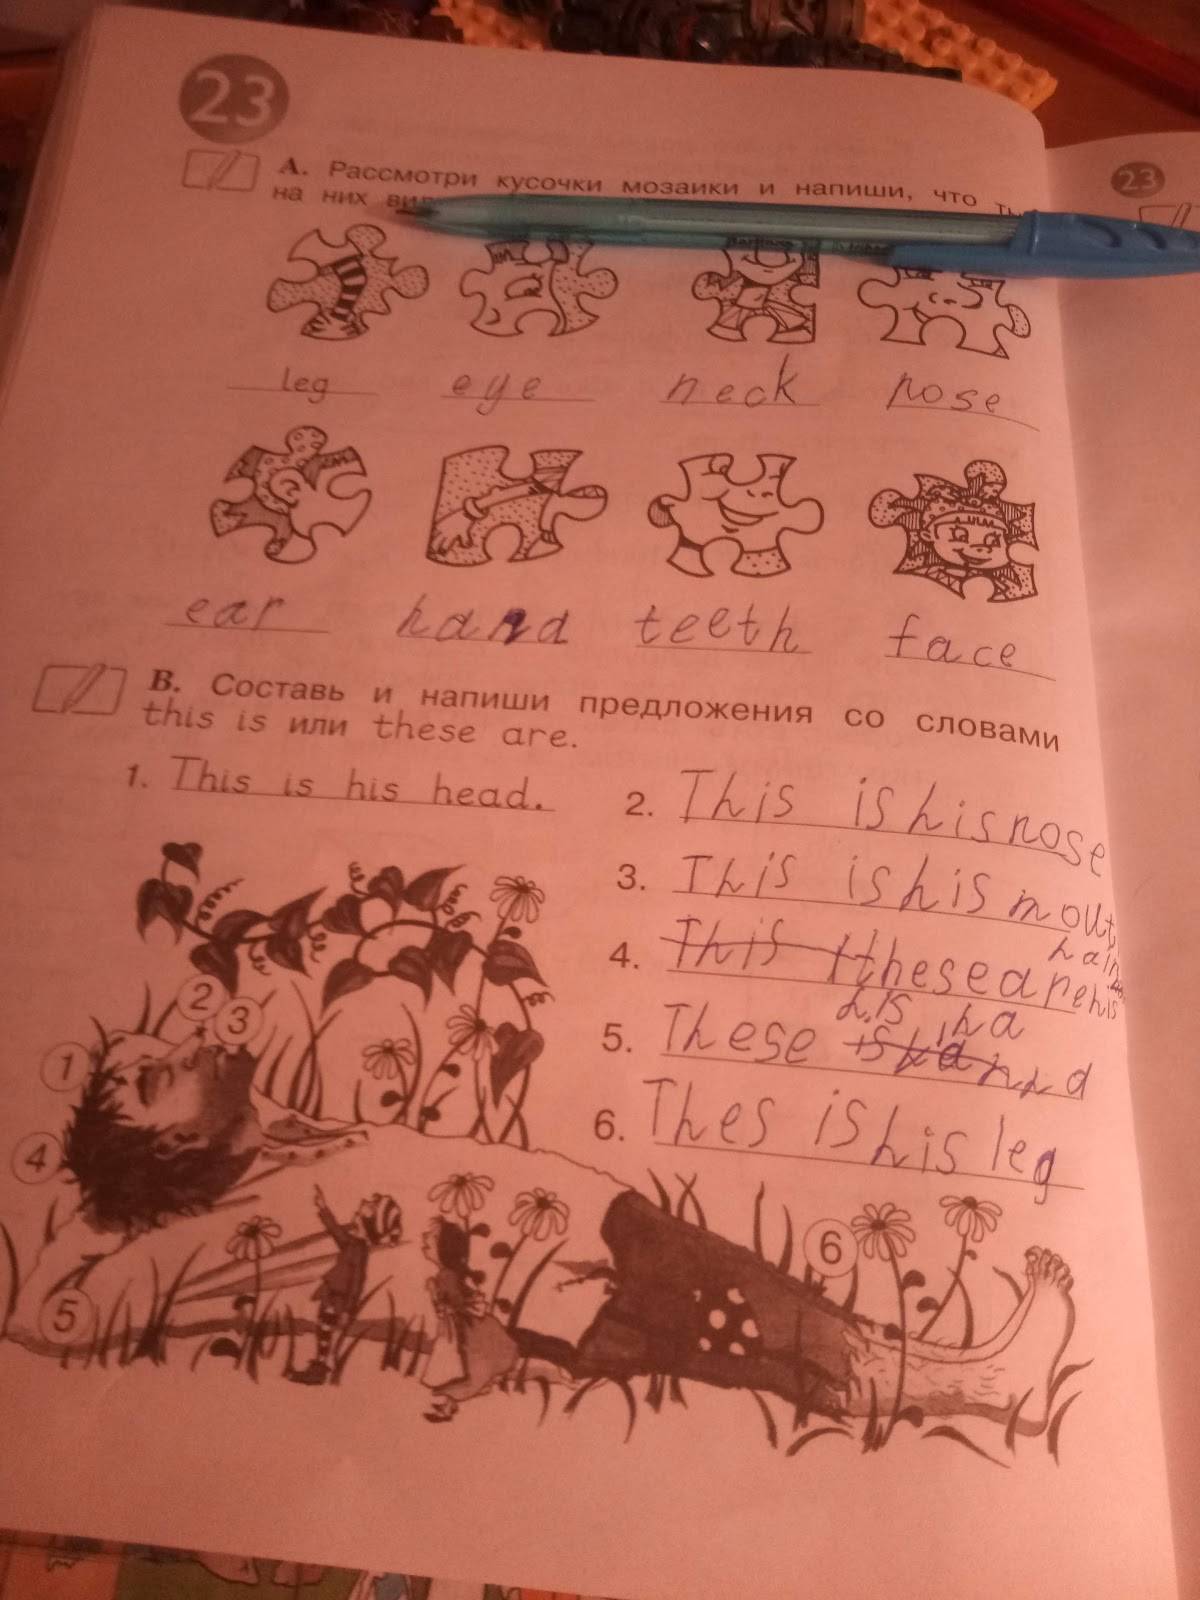 23
23
А. Рассмотри кусочки мозаики и напиши, что ты
на них
leg eye neck nose
ear hand teeth face
В. Составь и напиши предложения со словами
this is или these are.
1. This is his head.
2. This is his nose
3. This is his mout
hair
4. This these are his
his ha
5. These is hand
6. Thes is his leg
1
2
3
4
5
6